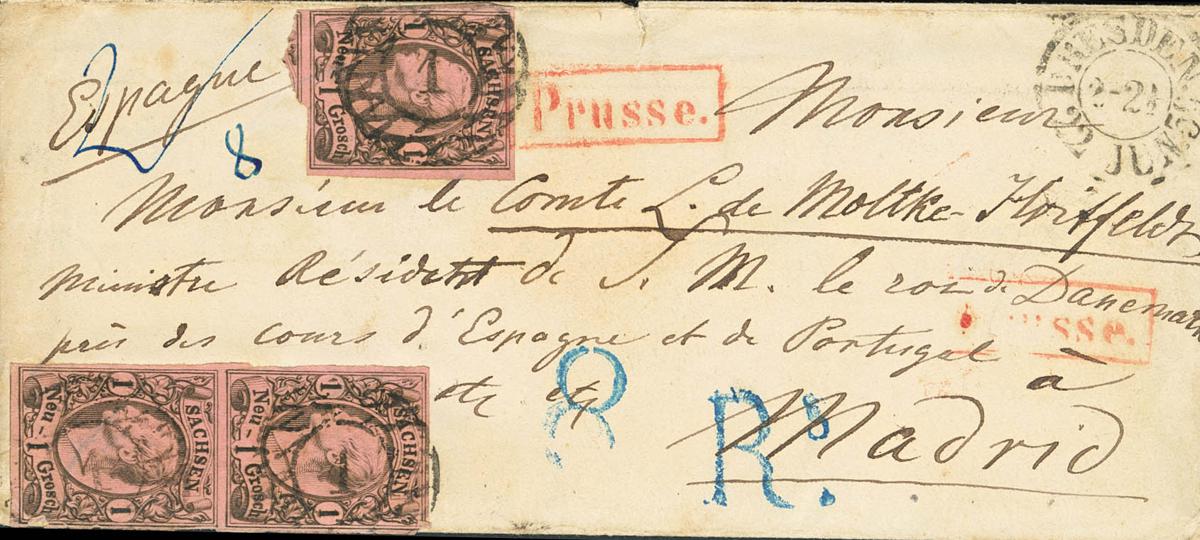 Espagne
8
1
SACHSEN
Neu-1 Grosch
1
Prusse.
DRESDEN
22 JUN.
Monsieur
Monsieur le Comte L. de Moltke-Hvitfeldt
ministre Résident de S. M. le roi de Danemark
près des cours d'Espagne et de Portugal à
usse.
etc etc
8 Rs
Madrid
1
SACHSEN
Neu-1 Grosch
1
1
SACHSEN
Neu-1 Grosch
1